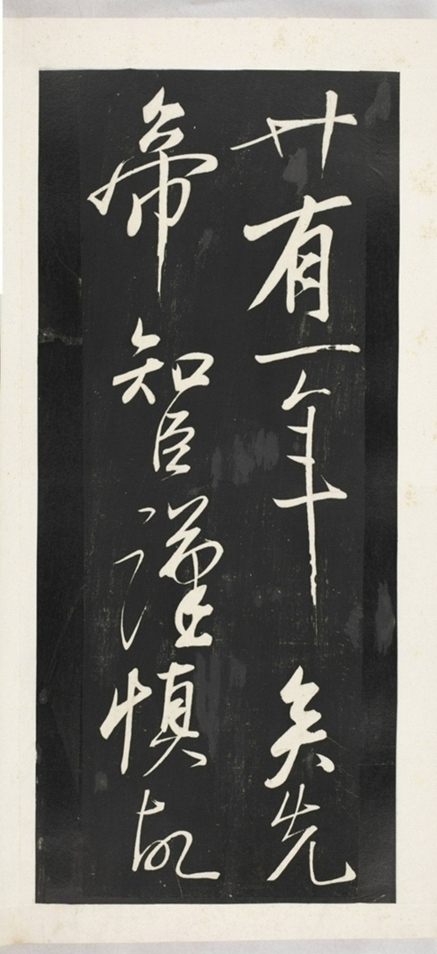 廿有一年矣先
帝知臣謹慎故